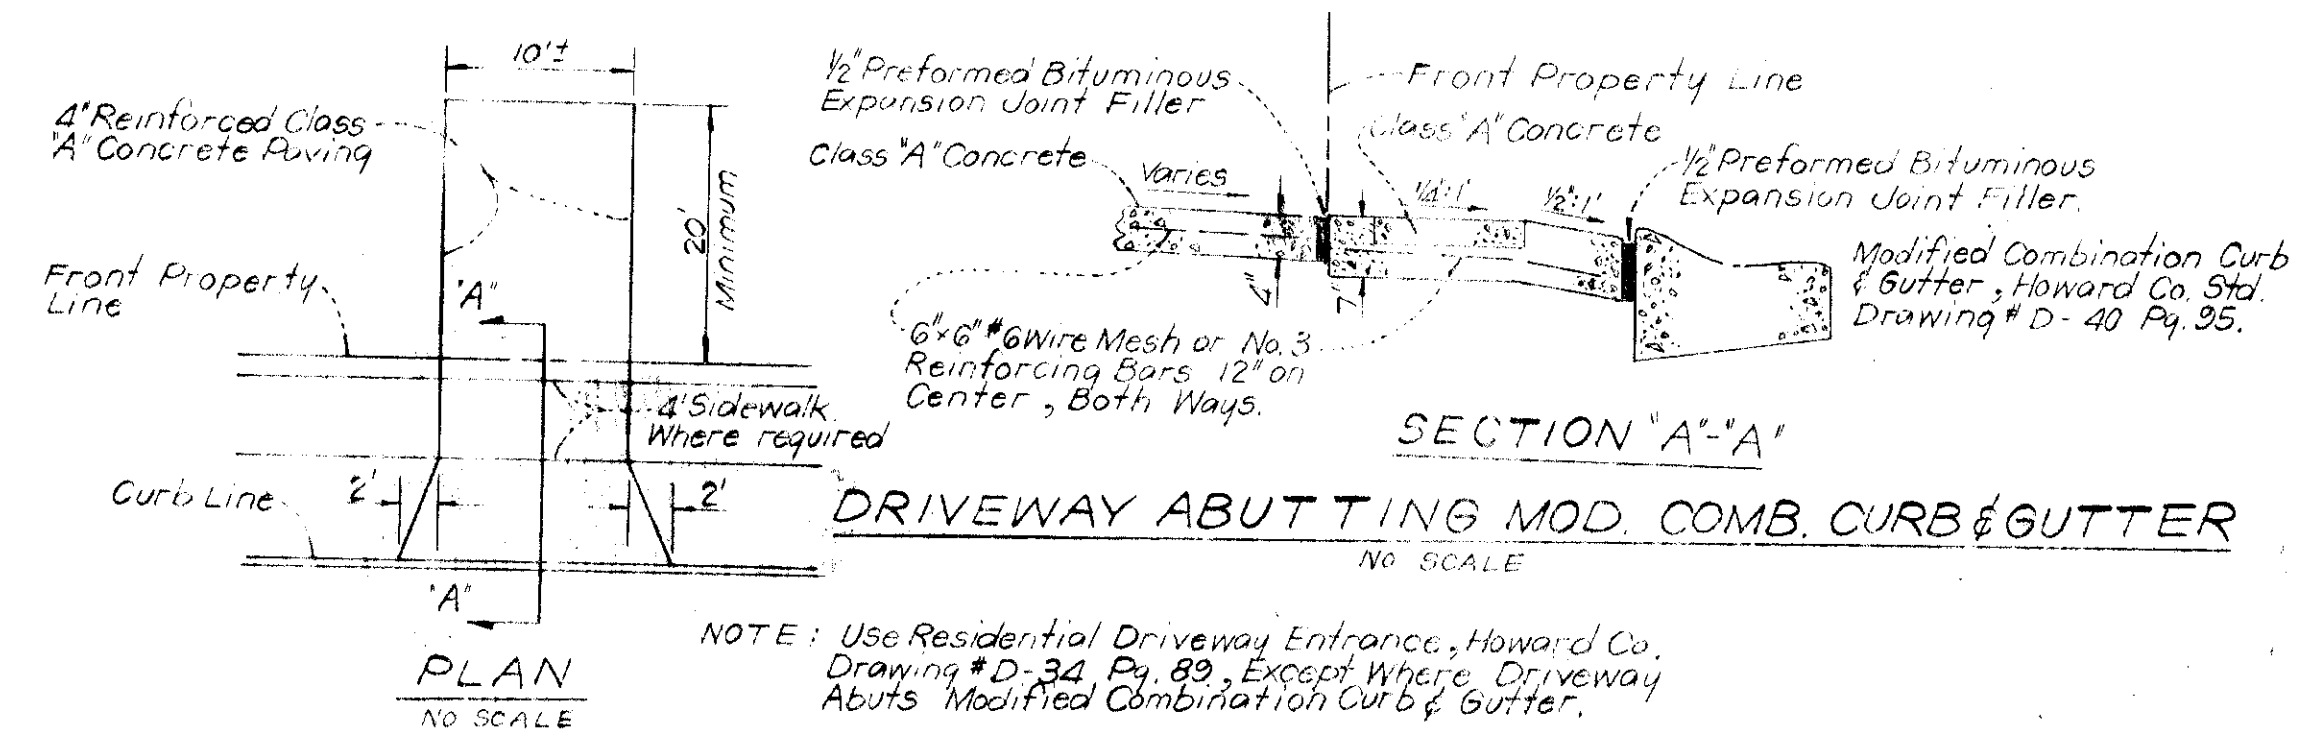 10'±
4" Reinforced Class
"A" Concrete Paving
20'
Minimum
Front Property
Line
"A"
4' Sidewalk
Where required
Curb Line
2'
2'
"A"
PLAN
NO SCALE
1/2" Preformed Bituminous
Expansion Joint Filler
Front Property Line
Class "A" Concrete
Class "A" Concrete
Varies
1/4":1'
1/2":1'
1/2" Preformed Bituminous
Expansion Joint Filler.
4"
7"
Modified Combination Curb
& Gutter, Howard Co. Std.
Drawing # D-40 Pg. 95.
6"x6" #6 Wire Mesh or No. 3
Reinforcing Bars 12" on
Center, Both Ways.
SECTION "A"-"A"
DRIVEWAY ABUTTING MOD. COMB. CURB & GUTTER
NO SCALE
NOTE: Use Residential Driveway Entrance, Howard Co.
Drawing # D-34 Pg. 89, Except Where Driveway
Abuts Modified Combination Curb & Gutter.